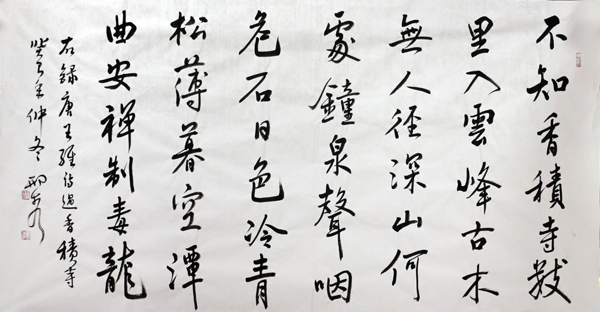 不知香積寺數
里入雲峰古木
無人徑深山何
處鐘泉聲咽
危石日色冷青
松薄暮空潭
曲安禪制毒龍
右錄唐王維詩過香積寺
癸巳年仲冬